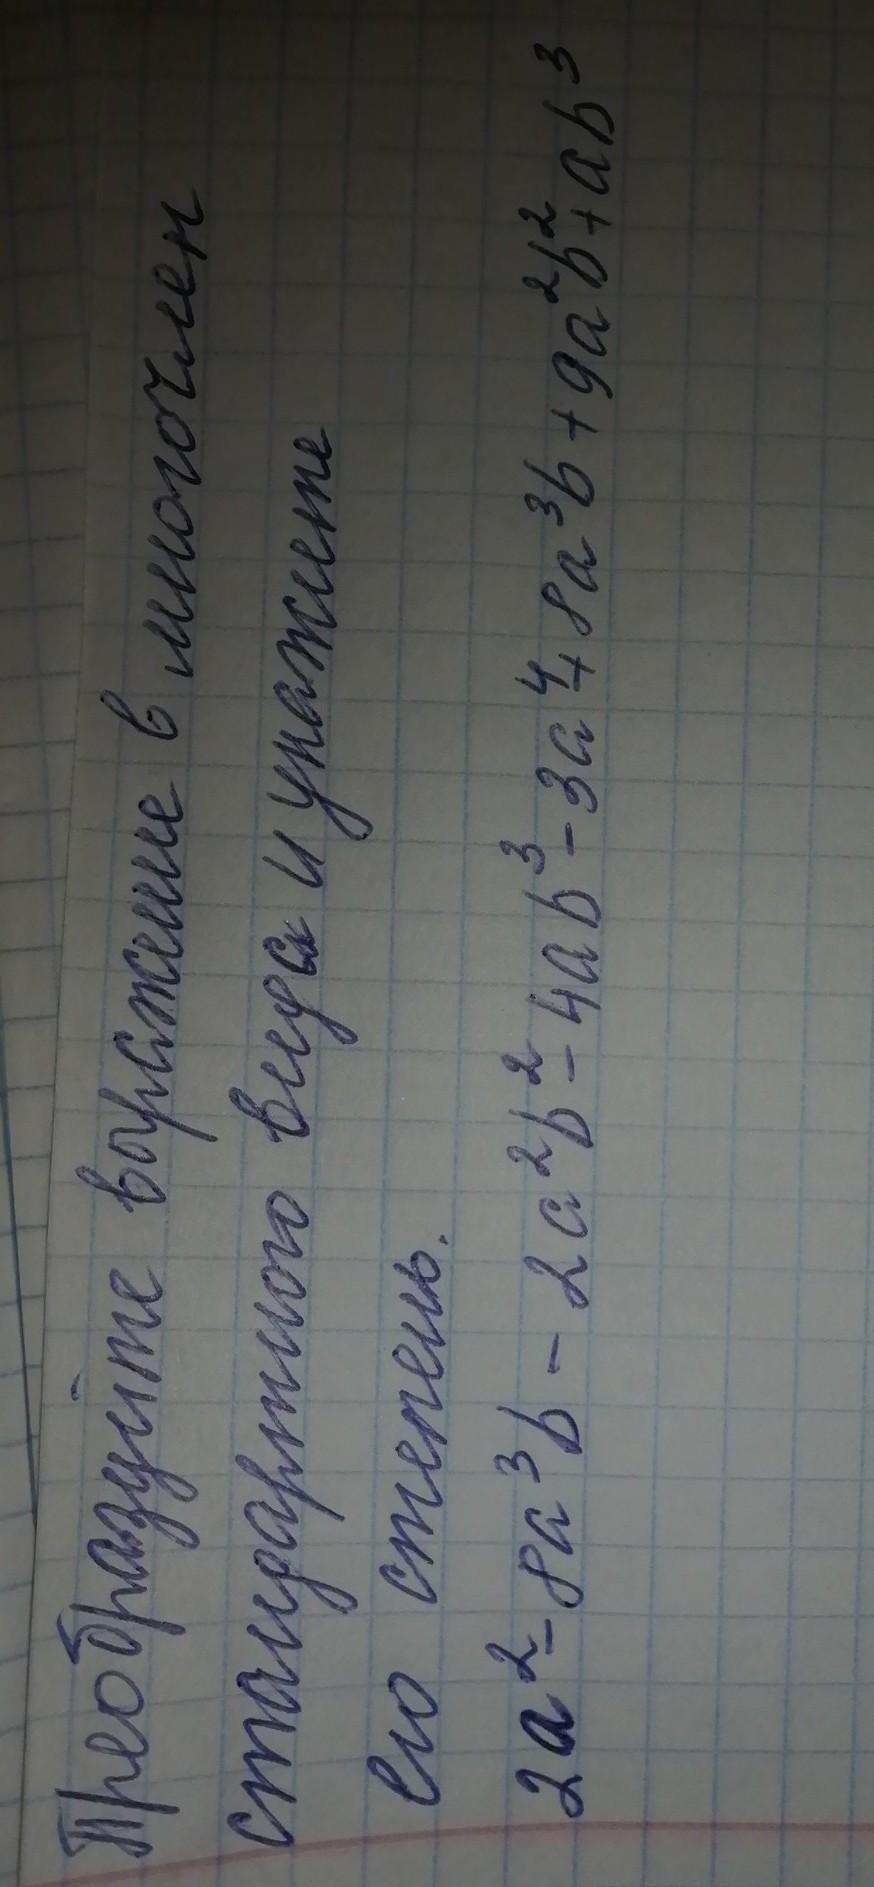 Преобразуйте выражение в многочлен
стандартного вида и укажите
его степень.
2a²-8a³b-2a²b²-4ab³-3a⁴+8a³b+9a²b²+ab³